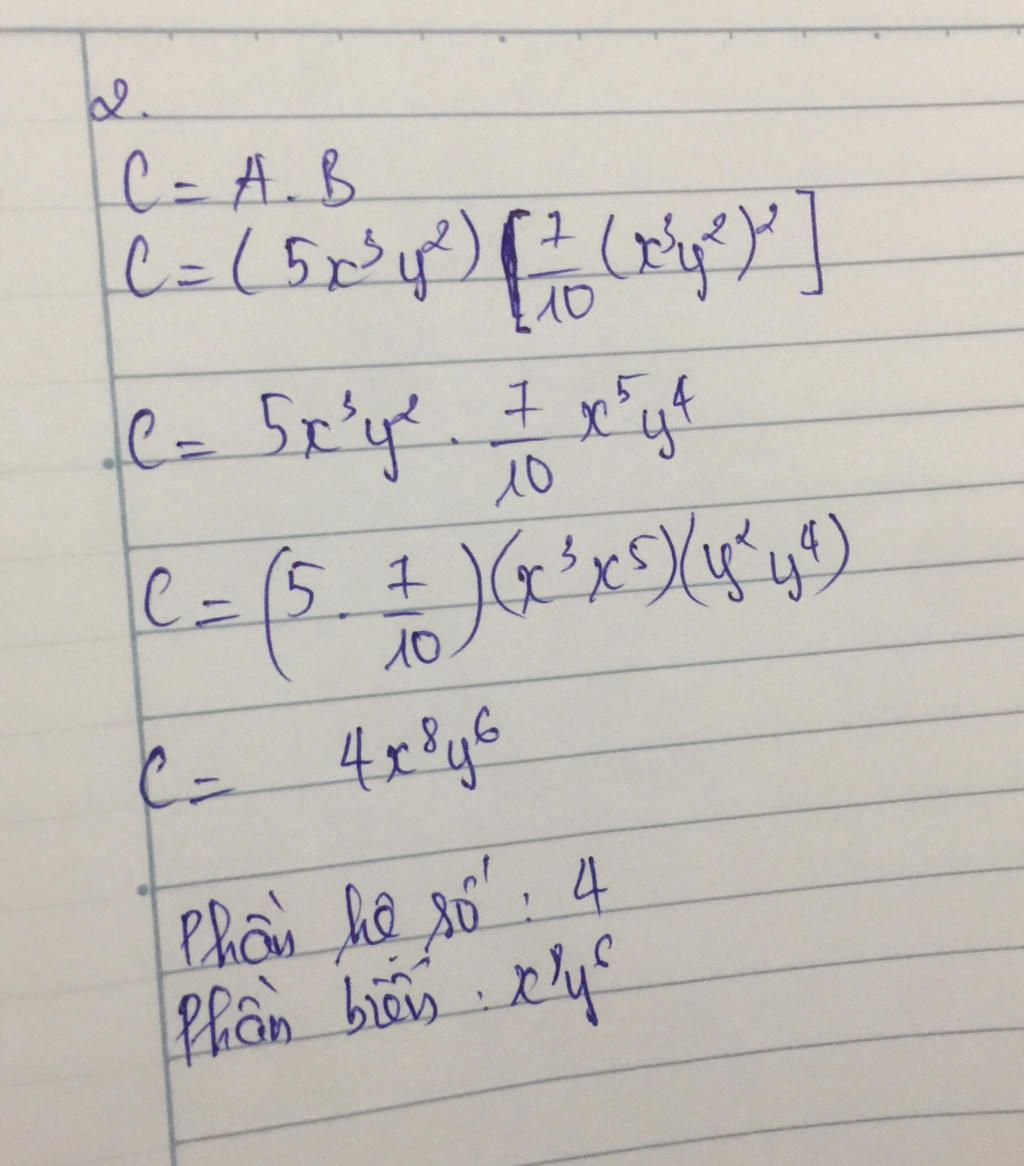 2.
C = A . B
C = ( 5x³y²) [7/10 (x³y²)²]
C = 5x³y² . 7/10 x⁵y⁴
C = (5 . 7/10)(x³x⁵)(y²y⁴)
C = 4x⁸y⁶
Phần hệ số : 4
Phần biến : x⁸y⁶